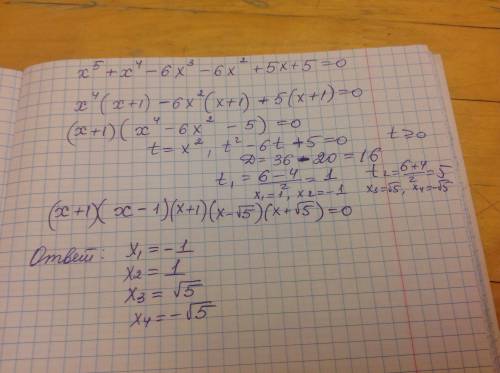 x⁵ + x⁴ - 6x³ - 6x² + 5x + 5 = 0
x⁴(x+1) - 6x²(x+1) + 5(x+1) = 0
(x+1)(x⁴ - 6x² - 5) = 0
t = x², t² - 6t + 5 = 0 t ≥ 0
D = 36 - 20 = 16
t₁ = (6-4)/2 = 1 t₂ = (6+4)/2 = 5
x₁ = 1, x₂ = -1 x₃ = √5, x₄ = -√5
(x+1)(x-1)(x+1)(x-√5)(x+√5) = 0
Ответ: x₁ = -1
x₂ = 1
x₃ = √5
x₄ = -√5